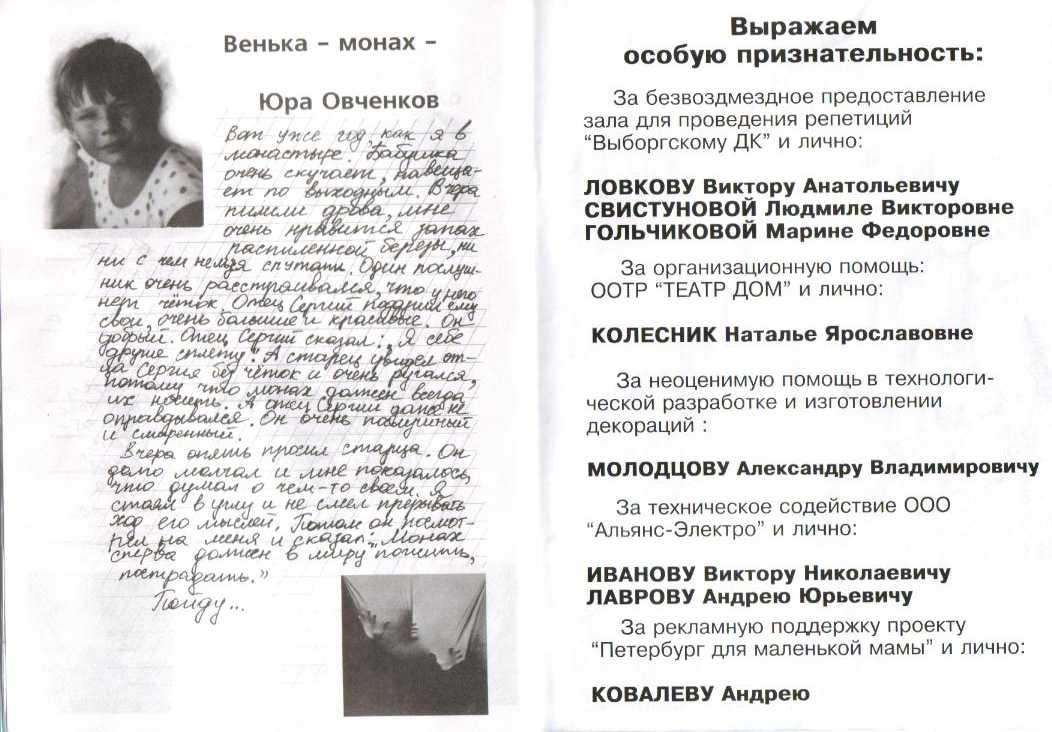 Венька – монах –
Юра Овченков
Вот уже год, как я в
монастыре. Бабушка
очень скучает, навеща-
ет по выходным. Вчера
пилили дрова, мне
очень нравится запах
распиленной березы, ни
ни с чем нельзя спутать. Один послуш-
ник очень расстраивался, что у него
нет чёток. Отец Сергий подарил ему
свои, очень большие и красивые. Он
добрый. Отец Сергий сказал: „Я себе
другие сплету". А старец увидел от-
ца Сергия без чёток и очень ругался,
потому что монах должен всегда
их носить. А отец Сергий даже не
оправдывался. Он очень послушный
и смиренный.
Вчера опять просил старца. Он
долго молчал и мне показалось,
что думал о чем-то своем. Я
стоял в углу и не смел прерывать
ход его мыслей. Потом он посмот-
рел на меня и сказал: „Монах
сперва должен в миру пожить,
пострадать."
Пойду...
Выражаем
особую признательность:
За безвоздмездное предоставление
зала для проведения репетиций
"Выборгскому ДК" и лично:
ЛОВКОВУ Виктору Анатольевичу
СВИСТУНОВОЙ Людмиле Викторовне
ГОЛЬЧИКОВОЙ Марине Федоровне
За организационную помощь:
ООТР "ТЕАТР ДОМ" и лично:
КОЛЕСНИК Наталье Ярославовне
За неоценимую помощь в технологи-
ческой разработке и изготовлении
декораций :
МОЛОДЦОВУ Александру Владимировичу
За техническое содействие ООО
"Альянс-Электро" и лично:
ИВАНОВУ Виктору Николаевичу
ЛАВРОВУ Андрею Юрьевичу
За рекламную поддержку проекту
"Петербург для маленькой мамы" и лично:
КОВАЛЕВУ Андрею